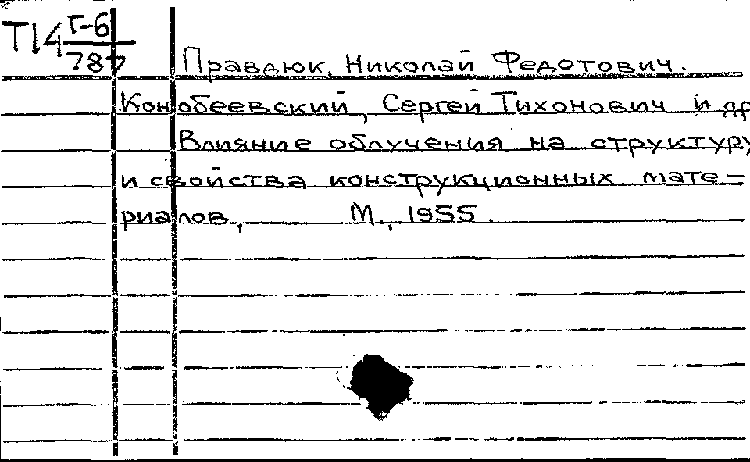 Т14 Г-6
784
Правдюк, Николай Федотович.
Конобеевский, Сергей Тихонович и др
Влияние облучения на структуру
и свойства конструкционных мате-
риалов, М., 1955.